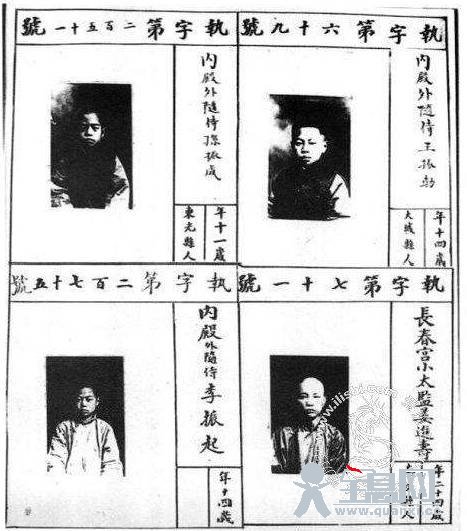 執字第六十九號
內殿外隨侍王振
年十四歲
大城縣人
執字第二百五十一號
內殿外隨侍孫振
年十一歲
東光縣人
執字第七十一號
長春宮小太監姜進壽
年二十四歲
執字第二百七十五號
內殿外隨侍李振起
年十四歲
全息网